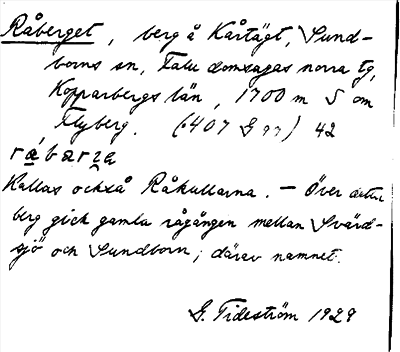 Råberget, berg å Kårtägt, Sund-
borns sn, Falu domsagas norra tg,
Kopparbergs län, 1700 m S om
Flyberg. (:407 G 77) 42
Kallas också Råkullarna. — Över detta
berg gick gamla rågången mellan Svärd-
sjö och Sundborn; därav namnet.
G. Tideström 1929